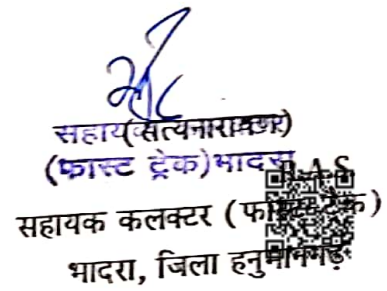 (सत्यनारायण)
(फास्ट ट्रेक) भादरा
R.A.S
सहायक कलक्टर (फास्ट ट्रेक)
भादरा, जिला हनुमानगढ़